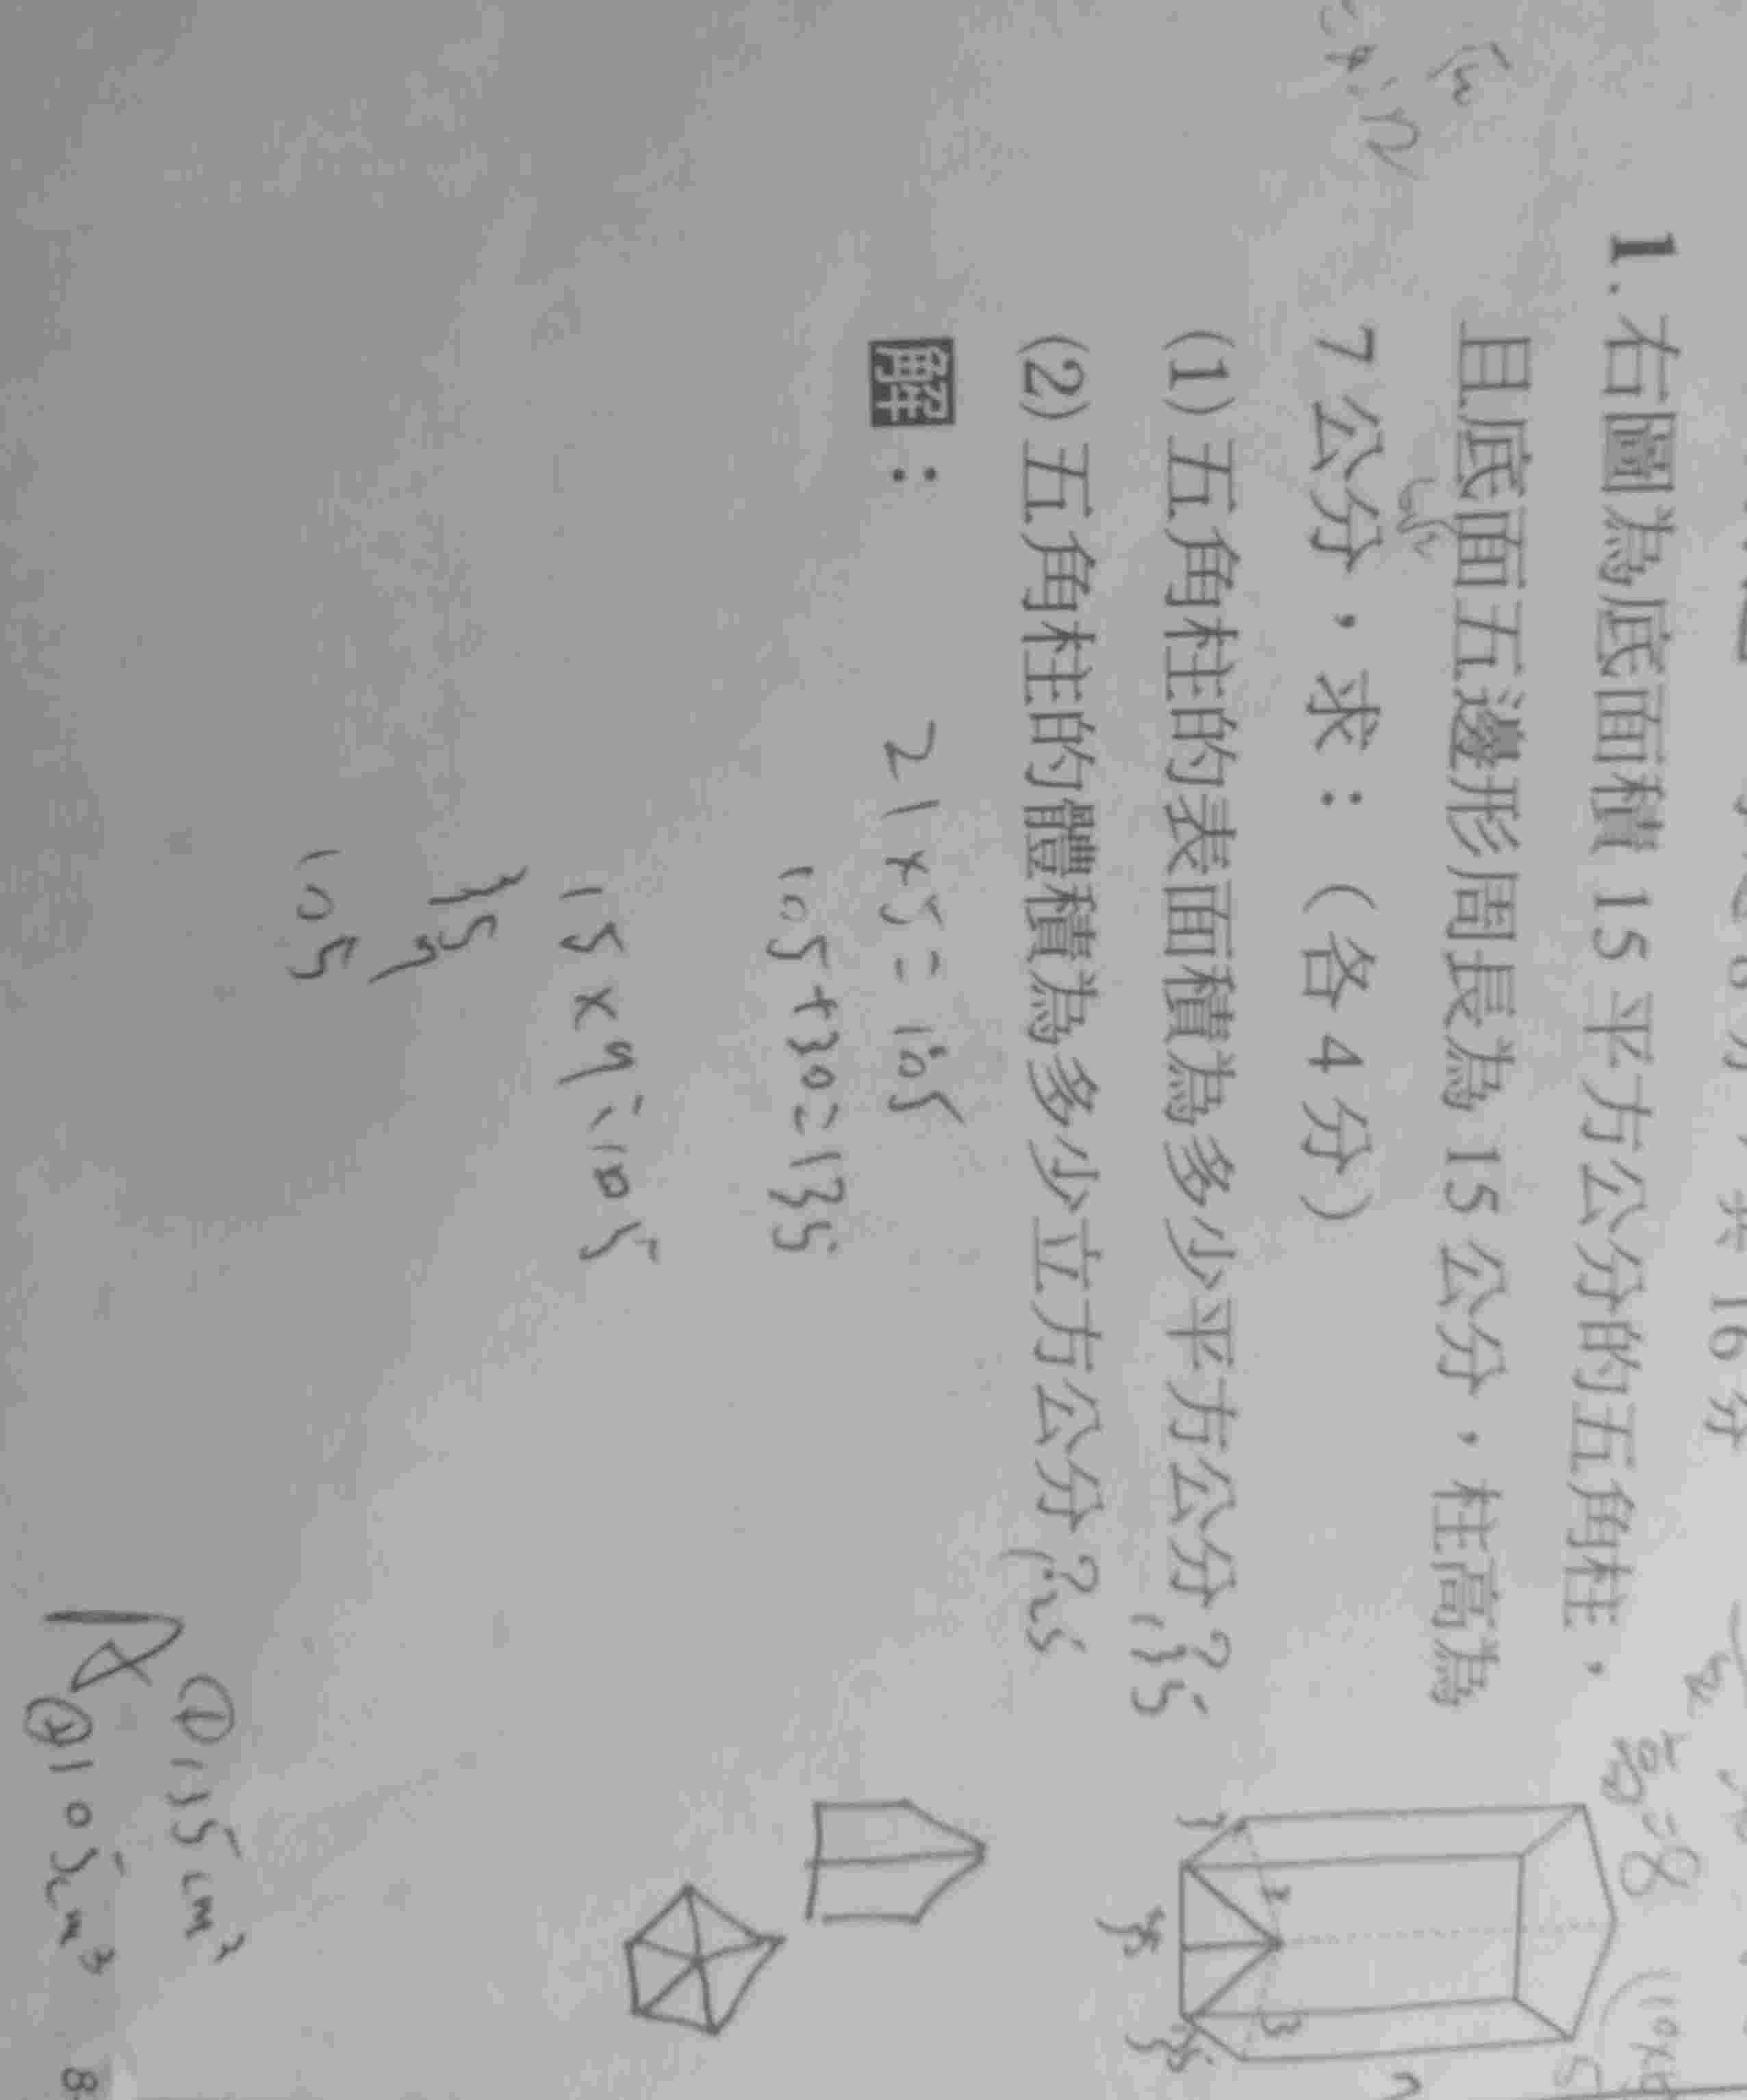 共 16 分
1. 右圖為底面積 15 平方公分的五角柱，
且底面五邊形周長為 15 公分，柱高為
7 公分，求：（各 4 分）
(1) 五角柱的表面積為多少平方公分？135
(2) 五角柱的體積為多少立方公分？105
解：
21×5=105
105+30=135
15×7=105
15
7
105
A
①135cm²
②105cm³
高=8
3
3
8